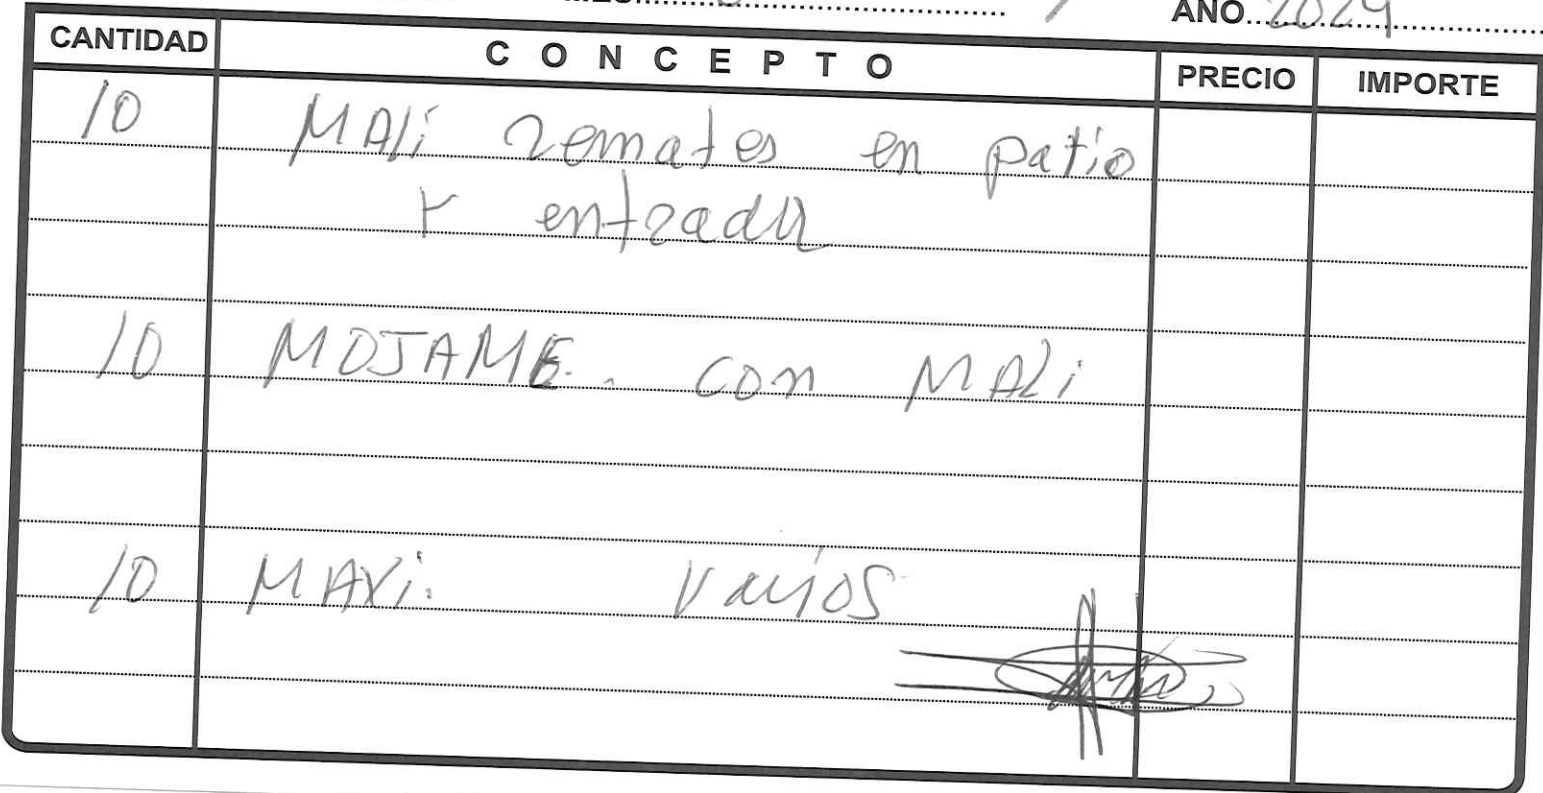 AÑO 2024
CANTIDAD CONCEPTO PRECIO IMPORTE
10 MALi remates en patio
Y entrada
10 MOJAME. con MALi
10 MAXi. Varios